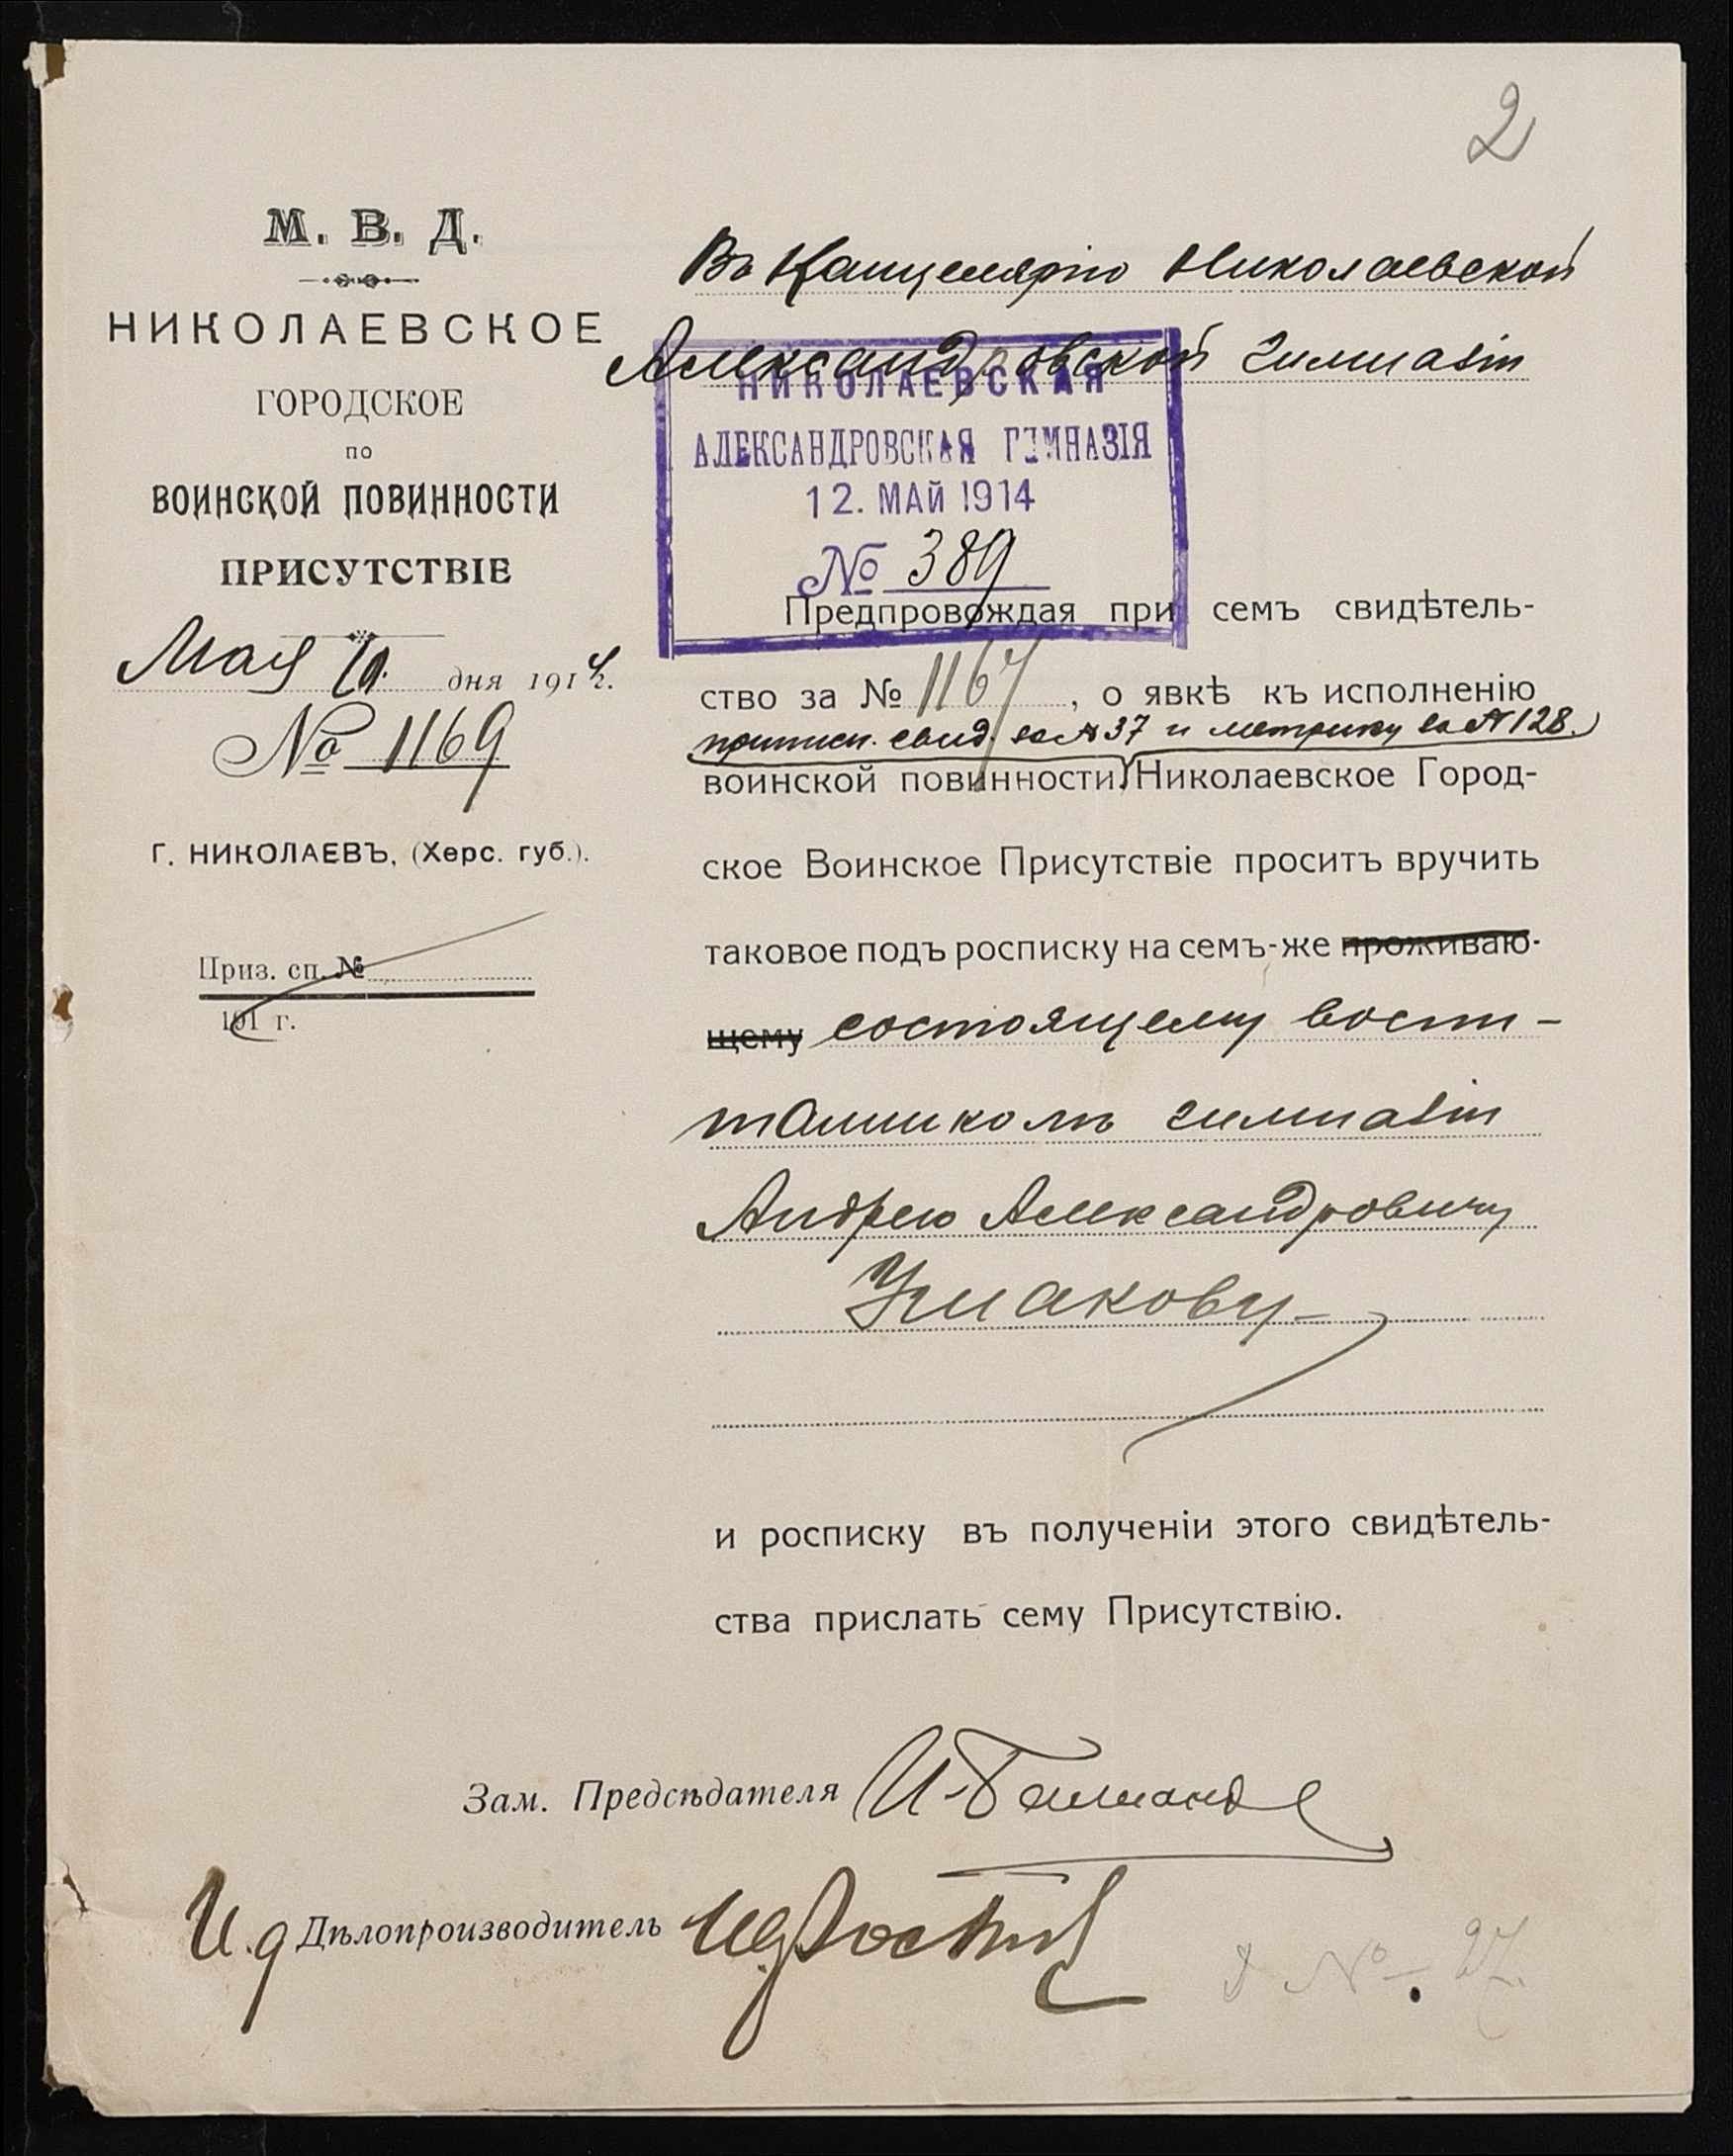 2
М. В. Д.
НИКОЛАЕВСКОЕ
ГОРОДСКОЕ
по
ВОИНСКОЙ ПОВИННОСТИ
ПРИСУТСТВІЕ
Мая 10. дня 1914 г.
№ 1169
Г. НИКОЛАЕВЪ, (Херс. губ.).
Приз. сп. №
191 г.
Въ Канцелярію Николаевской
Александровской гимназіи
НИКОЛАЕВСКАЯ
АЛЕКСАНДРОВСКАЯ ГИМНАЗІЯ
12. МАЙ 1914
№ 389
Предпровождая при семъ свидѣтель-
ство за № 1167, о явкѣ къ исполненію
приписн. свид. за № 37 и метрику за № 128.
воинской повинности. Николаевское Город-
ское Воинское Присутствіе проситъ вручить
таковое подъ росписку на семъ-же проживаю-
щему состоящему воспи-
танникомъ гимназіи
Андрею Александровичу
Ушакову
и росписку въ полученіи этого свидѣтель-
ства прислать сему Присутствію.
Зам. Предсѣдателя
И. д Дѣлопроизводитель
№ 27.